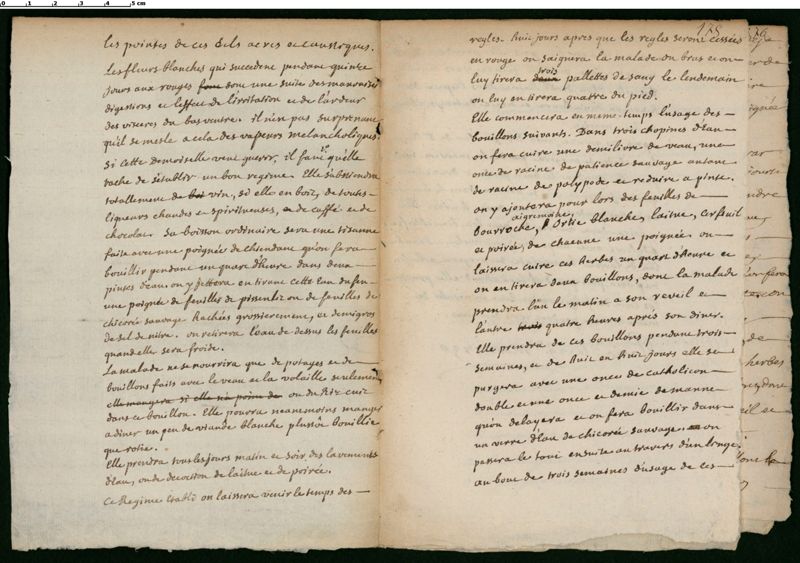 0 1 2 3 4 5 cm
les pointes de ces sels acres et caustiques.
Les fleurs blanches qui succedent pendant quinze
jours aux rouges sont donc une suite des mauvaises
digestions et l'effet de l'irritation et de l'ardeur
des visceres du bas ventre. il n'est pas surprenant
qu'il se mesle a cela des vapeurs melancholiques.
Si cette Demoiselle veut guerir, il faut qu'elle
tache de s'etablir un bon regime. Elle s'abstiendra
totallement de boi vin, si elle en boit, de toutes
liqueurs chaudes et spiritueuses, et de caffé et de
chocolat. Sa boisson ordinaire sera une tisanne
faite avec une poignée de chiendant qu'on fera
bouillir pendant un quart d'heure dans deux
pintes d'eau on y jettera en tirant cette eau du feu
une poignée de feuilles de pissenlit ou de feuilles de
chicorée sauvage hachées grossierement, et demi gros
de sel de nitre. on retirera l'eau de dessus les feuilles
quand elle sera froide.
La malade ne se nourrira que de potages et de
bouillons faits avec le veau et la volaille seulement,
elle mangera si elle n'a point de ou du Riz cuit
dans ce bouillon. Elle pourra neanmoins manger
a diner un peu de viande blanche plustôt bouillie
que rotie.
Elle prendra tous les jours matin et soir des lavements
d'eau, ou de decoction de laitue et de poirée.
Ce Regime établi on laissera venir le temps des
178
regles. huit jours apres que les regles seront cessées
en rouge on saignera la malade du bras et on
luy tirera deux trois pallettes de sang le lendemain
on luy en tirera quatre du pied.
Elle commencera en meme temps l'usage des
bouillons suivants. Dans trois chopines d'eau
on fera cuire une demi livre de veau, une
once de racine de patience sauvage autant
de racine de polypode et reduire a pinte.
on y ajoutera pour lors des feuilles de
bourroche, aigremoine, Ortie blanche, laitue, Cerfeuil
et poirée, de chacune une poignée on
laissera cuire ces herbes un quart d'heure et
on en tirera deux bouillons, dont la malade
prendra l'un le matin a son reveil et
l'autre trois quatre heures après son diner.
Elle prendra de ces bouillons pendant trois
semaines, et de huit en huit jours elle se
purgera avec une once de catholicon
double et une once et demie de manne
qu'on delayera et on fera bouillir dans
un verre d'eau de chicorée sauvage. on
passera le tout ensuite au travers d'un linge.
au bout de trois semaines d'usage de ces